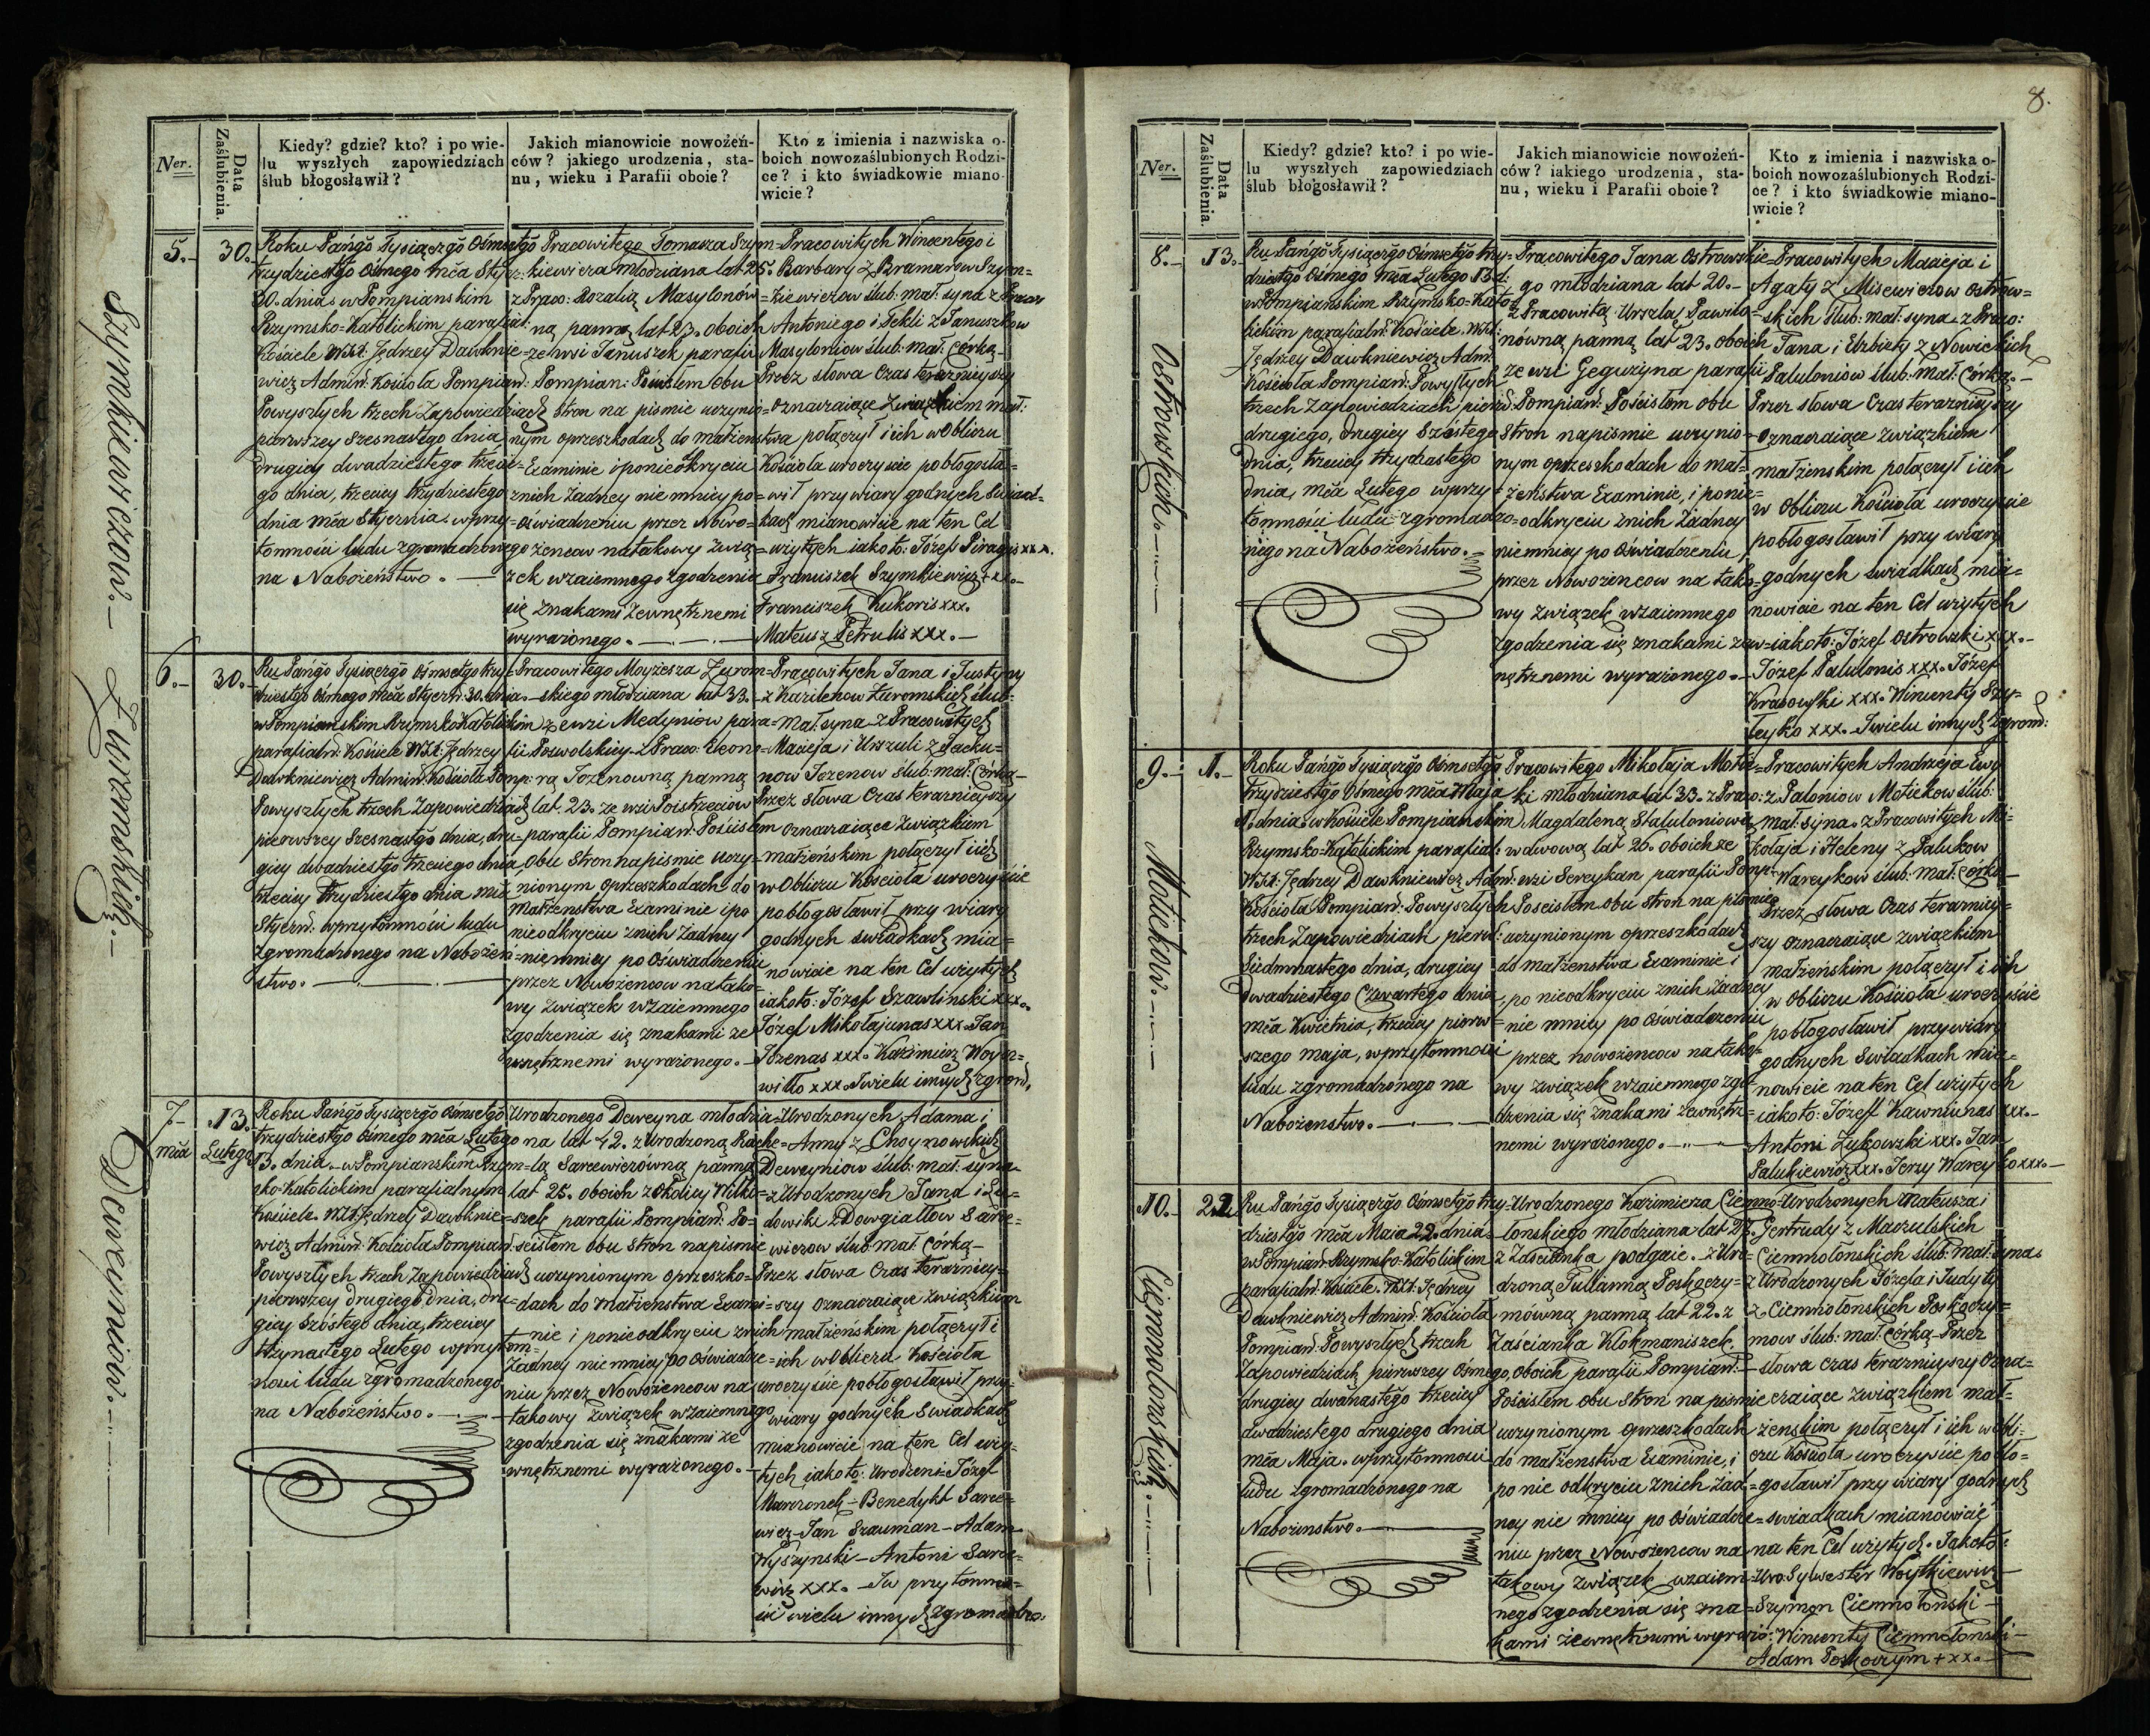 8.
Ner.
Data Zaślubienia.
Kiedy? gdzie? kto? i po wie-
lu wyszłych zapowiedziach
ślub błogosławił?
Jakich mianowicie nowożeń-
ców? jakiego urodzenia, sta-
nu, wieku i Parafii oboie?
Kto z imienia i nazwiska o-
boich nowozaślubionych Rodzi-
ce? i kto świadkowie miano-
wicie?
Szymkiewiczow.
5.
30.
Roku Pańgo Tysiączgo Ośmsetgo
trzydziestgo Ośmego mća Stycz:
30. dnia w Pompianskim
Rzymsko=Katolickim parafial:
Kościele WJX: Jędrzey Dawknie=
wicz Admin: Kościoła Pompian:
Powyszłych trzech Zapowiedziach
pierwszey szesnastego dnia,
drugiey dwadziestego trzecie=
go dnia, trzeciey trzydziestego
dnia mća Stycznia w przy=
tomności ludu zgromadzonego
na Nabożeństwo.
Pracowitego Tomasza Szym=
kiewicza młodziana lat 25.
z Praco: Rozalią Masylonów=
ną panną lat 23. oboich
ze wsi Januszek parafii
Pompian: Pościsłem Obu
stron na pismie uczynio=
nym oprzeszkodach do małżenstwa
Examinie i ponieodkryciu
znich żadney nie mniey po=
oświadczeniu przez Nowo=
żencow natakowy zwią=
zek wzaiemnego zgodzenia
się znakami zewnętrznemi
wyrażonego.
Pracowitych Wincentego i
Barbary z Bramarow Szym=
kiewiczow ślub: mał: syna z Praco:
Antoniego i Tekli z Januszkow
Masyloniow ślub: mał: córką
Przez słowa Czas teraznieyszy
oznaczaiące Związkiem mał:
połączył i ich w Obliczu
Kościoła uroczyscie pobłogosła=
wił przy wiary godnych świad=
kach mianowicie na ten Cel
użytych iako to: Józef Piragis xxx.
Franciszek Szymkiewicz +xx.
Franciszek Kukoris xxx.
Mateusz Petrulis xxx.
Żuromskich.
6.
30.
Ru Pańgo Tysiączgo Ośmsetgo trzy=
dziestgo Ośmego mća Styczn: 30. dnia
w Pompianskim Rzymsko Katolickim
parafialn: Kościele WJX: Jędrzey
Dawkniewicz Admin: Kościoła Pomp:
Powyszłych trzech Zapowiedziach
pierwszey szesnastgo dnia, dru=
giey dwadziestgo trzeciego dnia,
trzeciey Trzydziestgo dnia mća
Styczn: wprzytomności ludu
zgromadzonego na Nabożeń=
stwo.
Pracowitego Moyżesza Żurom=
skiego młodziana lat 33.
ze wsi Medyniow para=
fii Poswolskiey z Praco: Eleono=
rą Jozenowną panną
lat. 23. ze wsi Poistrzeciow
parafii Pompian: Pościsłem
Obu Stron napismie uczy=
nionym oprzeszkodach do
Małżenstwa Examinie i po
nieodkryciu znich żadney
niemniey po Oświadczeniu
przez Nowożencow natako=
wy związek wzaiemnego
zgodzenia się znakami ze
wnętrznemi wyrażonego.
Pracowitych Jana i Justyny
z Kazilenow Żuromskich ślub:
mał: syna z Pracowitych
Macieja i Urszuli z Jacku=
now Jozenow ślub: mał: córką
Przez słowa Czas teraznieyszy
oznaczaiące Związkiem
małżeńskim połączył i ich
w Obliczu Kościoła uroczyście
pobłogosławił przy wiary
godnych świadkach mia=
nowicie na ten Cel użytych
iakoto: Józef Szawlinski xxx.
Józef Mikołajunas xxx. Jan
Jozenas xxx. Kazimierz Woyn=
wiłło xxx. Iwielu innych zgrom:
Deweyniow.
7.
mća
13.
Lutego
Roku Pańgo Tysiączgo Ośmsetgo
trzydziestgo Ośmego mća Lutego
13. dnia w Pompianskim Rzym=
sko=Katolickim parafialnym
Kościele. WJX: Jędrzey Dawknie=
wicz Admin: Kościoła Pompian:
Powyszłych trzech Zapowiedziach
pierwszey drugiego dnia, dru=
giey szóstego dnia, trzeciey
trzynastego Lutego wprzytom=
ności ludu zgromadzonego
na Nabożeństwo.
Urodzonego Deweyna młodzia=
na lat 42. z Urodzoną Rache=
lą Sarcewiczówną panną
lat 25. oboich z Okolicy Wilki=
szek parafii Pompian: Po=
ścisłem Obu Stron napismie
uczynionym oprzeszko=
dach do małżenstwa Exami=
nie i ponieodkryciu znich
żadney niemniey po oświadcze=
niu przez Nowożencow na
takowy związek wzaiemnego
zgodzenia się znakami ze
wnętrznemi wyrażonego.
Urodzonych Adama i
Anny z Choynowskich
Deweyniow ślub: mał: syna
z Urodzonych Jana i Lu=
dowiki z Dowgiałłow Sarce=
wiczow ślub: mał: Córką
Przez słowa Czas teraźniey=
szy oznaczaiące związkiem
małżeńskim połączył i
ich wObliczu Kościoła
uroczyście pobłogosławił przy
wiary godnych świadkach
mianowicie na ten Cel uży=
tych iakoto: Urodzeni Józef
Marcionek - Benedykt Sarce=
wicz - Jan Szauman - Adam
Wyszynski - Antoni Sarce=
wicz xxx. - I w przytomno=
ści wielu innych zgromadzo:
Ner.
Data Zaślubienia.
Kiedy? gdzie? kto? i po wie-
lu wyszłych zapowiedziach
ślub błogosławił?
Jakich mianowicie nowożeń-
ców? iakiego urodzenia, sta-
nu, wieku i Parafii oboie?
Kto z imienia i nazwiska o-
boich nowozaślubionych Rodzi-
ce? i kto świadkowie miano-
wicie?
Ostrowskich.
8.
13.
Ru Pańgo Tysiączgo Ośmsetgo trzy=
dziestgo Ośmego mća Lutego 13 d:
w Pompianskim Rzymsko=Kato=
lickim parafialn: Kościele. WJX:
Jędrzey Dawkniewicz Adm:
Kościoła Pompian: Powyszłych
trzech zapowiedziach pierw:
drugiego, drugiey szóstego
dnia, trzeciey trzynastego
dnia, mća Lutego wprzy=
tomności ludu zgromadzo=
nego na Nabożeństwo.
Pracowitego Jana Ostrowskie=
go młodziana lat 20.
z Pracowitą Urszulą Pawilo=
nówną panną lat 23. oboich
ze wsi Gegużyna parafii
Pompian: Pościsłem obu
Stron napismie uczynio=
nym oprzeszkodach do mał=
żeństwa Examinie, i ponie=
odkryciu znich żadney
niemniey po Oświadczeniu
przez Nowożencow na tako=
wy związek wzaiemnego
zgodzenia się znakami zew=
nętrznemi wyrażonego.
Pracowitych Macieja i
Agaty z Misewiczow Ostrow=
skich ślub: mał: syna z Praco:
Jana i Elzbiety z Nowickich
Paluloniow ślub: mał: Córką.
Przez słowa Czas teraznieyszy
oznaczaiące związkiem
małżenskim połączył i ich
w Obliczu Kościoła uroczyście
pobłogosławił przy wiary
godnych świadkach mia=
nowicie na ten Cel użytych
iakoto: Józef Ostrowski xxx.
Józef Palulonis xxx. Józef
Krasowski xxx. Wincenty Szy=
leyko xxx. Iwielu innych zgrom:
Motiekow.
9.
1.
Roku Pańgo Tysiączgo Ośmsetgo
Trzydziestgo Ośmego mća Maja
1. dnia w Kościele Pompianskim
Rzymsko=Katolickim parafial:
WJX: Jędrzey Dawkniewicz Adm:
Kościoła Pompian: Powyszłych
trzech Zapowiedziach pierw:
Siedmnastego dnia, drugiey
dwadziestego Czwartego dnia
mća Kwietnia, trzeciey pierw=
szego maja, wprzytomności
ludu zgromadzonego na
Nabożenstwo.
Pracowitego Mikołaja Motie=
ki młodziana lat 33. z Praco:
Magdaleną Staluloniową
wdwową lat 26. oboich ze
wsi Sereykan parafii Pomp:
Pościsłem obu stron na pismie
uczynionym oprzeszkodach
do małżenstwa Examinie i
po nieodkryciu znich żadney
nie mniey po oświadczeniu
przez nowożencow na tako=
wy związek wzaiemnego zgo=
dzenia się znakami zewnętrz=
nemi wyrażonego.
Pracowitych Andrzeja Ewy
z Paloniow Motiekow ślub:
mał: syna. z Pracowitych Mi=
kołaja i Heleny z Palukow
Wareykow ślub: mał: Córką
Przez słowa Czas teraźniey=
szy oznaczaiące związkiem
małżeńskim połączył i ich
w Obliczu Kościoła uroczyście
pobłogosławił przy wiary
godnych świadkach mia=
nowicie na ten Cel użytych
iakoto: Józeff Kawniunas xxx.
Antoni Żukowski xxx. Jan
Palukiewicz xxx. Jerzy Wareyko xxx.
Ciemnołońskich.
10.
22.
Ru Pańgo Tysiączgo Ośmsetgo trzy=
dziestgo mća Maia 22. dnia
w Pompian: Rzymsko-Katolickim
parafialn: Kościele. WJX: Jędrzey
Dawkniewicz Admin: Kościoła
Pompian: Powyszłych trzech
Zapowiedziach pierwszey Osmego,
drugiey dwónastego trzeciey
dwadziestego drugiego dnia
mća Maja. wprzytomności
ludu zgromadzonego na
Nabożenstwo.
Urodzonego Kazimierza Ciemno=
łonskiego młodziana lat 27.
z Zaścianka podgaie. z Uro=
dzoną Julianną Poskoczy=
mówną panną lat 22. z
Zaścianka Klokmaniszek,
oboich parafii Pompian:
Pościsłem obu Stron na pismie
uczynionym oprzeszkodach
do małżenstwa Examinie, i
po nie odkryciu znich żad=
ney nie mniey po Oświadcze=
niu przez Nowożencow na
takowy związek wzaiem=
nego zgodzenia się zna=
kami zewnętrznemi wyrażo:
Urodzonych Mateusza i
Gertrudy z Maculskich
Ciemnołonskich ślub: mał: syna
z Urodzonych Józefa i Judyty
z Ciemnołonskich Poskoczy=
mow ślub: mał: Córką Przez
słowa czas teraznieyszy ozna=
czaiące związkiem mał=
żenskim połączył i ich wobli=
czu Kościoła uroczyście pobło=
gosławił przy wiary godnych
świadkach mianowicie
na ten Cel użytych. Jakoto:
Uro: Sylwester Woytkiewicz
Szymon Ciemnołoński
Wincenty Ciemnołonski
Adam Poskoczym +xx.